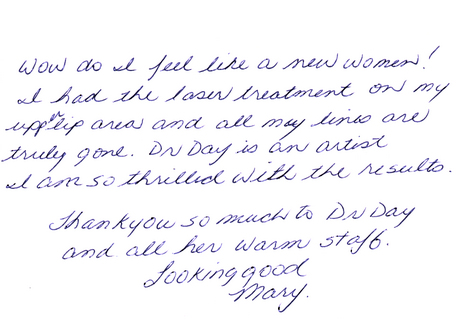 Wow do I feel like a new women!
I had the laser treatment on my
upper lip area and all my lines are
truly gone. Dr Day is an artist
I am so thrilled with the results.
Thankyou so much to Dr Day
and all her warm staff.
Looking good
Mary.